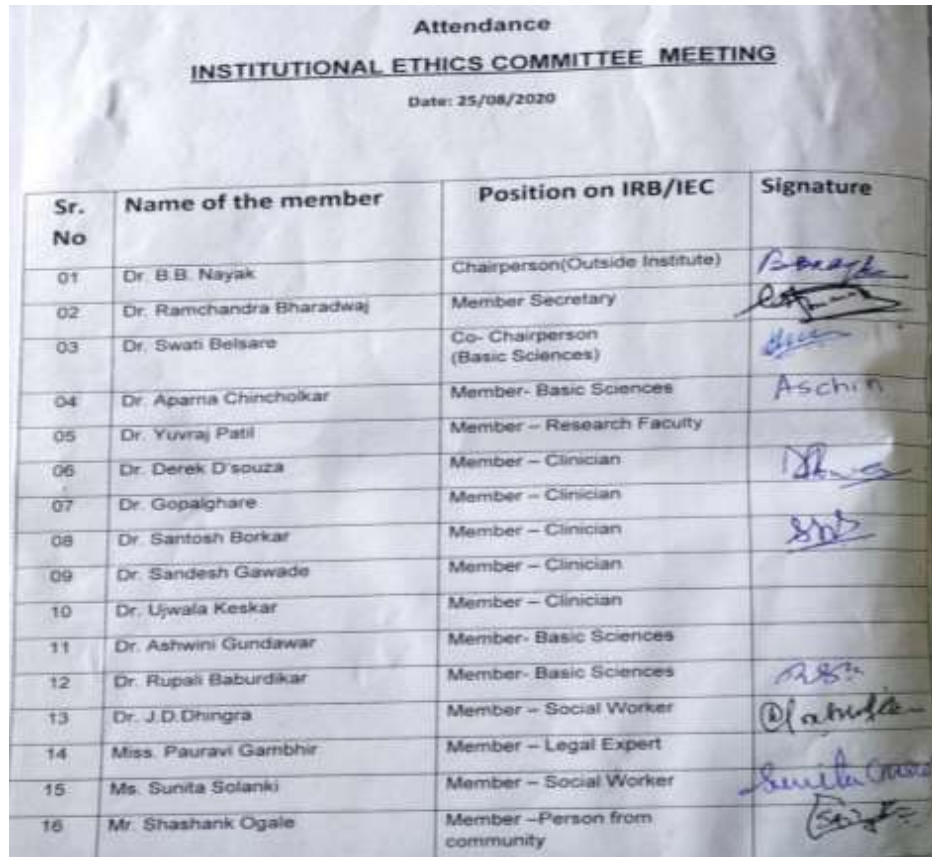 Attendance
INSTITUTIONAL ETHICS COMMITTEE MEETING
Date: 25/08/2020
Sr. No Name of the member Position on IRB/IEC Signature
01 Dr. B.B. Nayak Chairperson(Outside Institute)
02 Dr. Ramchandra Bharadwaj Member Secretary
03 Dr. Swati Belsare Co- Chairperson
(Basic Sciences)
04 Dr. Aparna Chincholkar Member- Basic Sciences Aschin
05 Dr. Yuvraj Patil Member – Research Faculty
06 Dr. Derek D'souza Member – Clinician
07 Dr. Gopalghare Member – Clinician
08 Dr. Santosh Borkar Member – Clinician
09 Dr. Sandesh Gawade Member – Clinician
10 Dr. Ujwala Keskar Member – Clinician
11 Dr. Ashwini Gundawar Member- Basic Sciences
12 Dr. Rupali Baburdikar Member- Basic Sciences
13 Dr. J.D.Dhingra Member – Social Worker
14 Miss. Pauravi Gambhir Member – Legal Expert
15 Ms. Sunita Solanki Member – Social Worker
16 Mr. Shashank Ogale Member –Person from
community